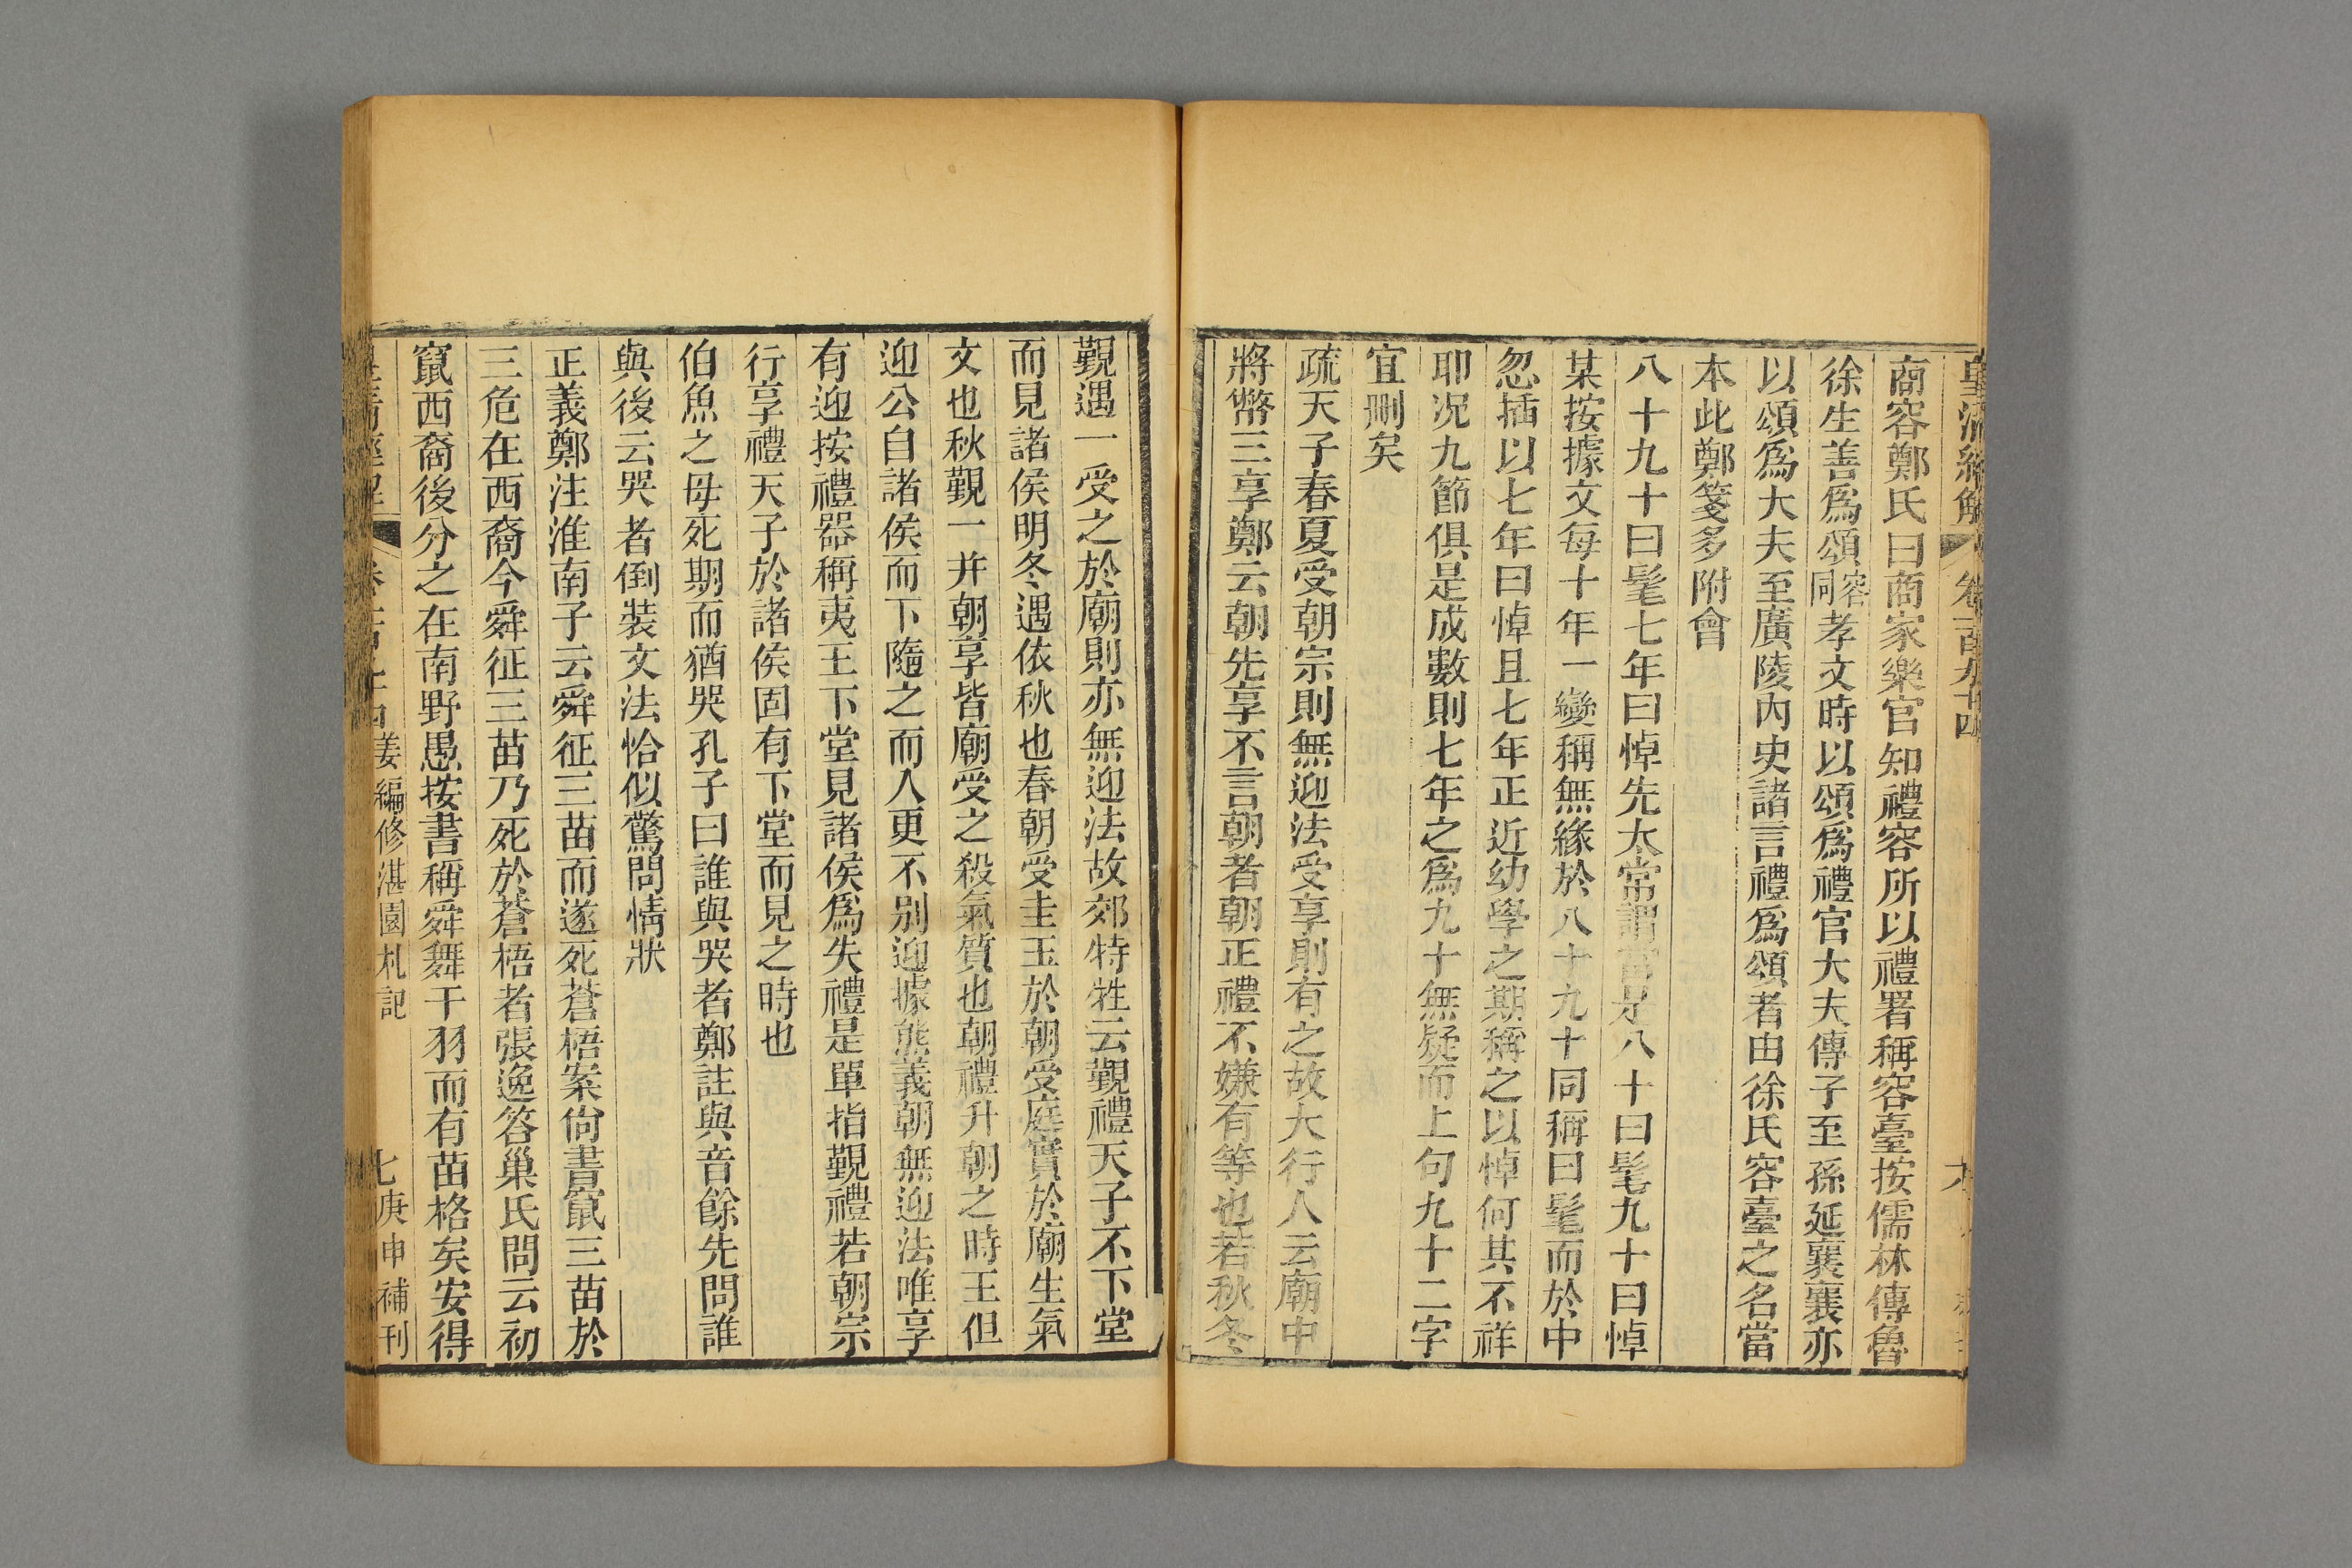 皇清經解 卷一百九十四 六
商容鄭氏曰商家樂官知禮容所以禮署稱容臺按儒林傳魯
徐生善為頌容同孝文時以頌為禮官大夫傳子至孫延襄襄亦
以頌為大夫至廣陵內史諸言禮為頌者由徐氏容臺之名當
本此鄭箋多附會
八十九十曰髦七年曰悼先太常謂當是八十曰髦九十曰悼
某按據文每十年一變稱無緣於八十九十同稱曰髦而於中
忽插以七年曰悼且七年正近幼學之期稱之以悼何其不祥
耶況九節俱是成數則七年之為九十無疑而上句九十二字
宜刪矣
疏天子春夏受朝宗則無迎法受享則有之故大行人云廟中
將幣三享鄭云朝先享不言朝者朝正禮不嫌有等也若秋冬
覲遇一受之於廟則亦無迎法故郊特牲云覲禮天子不下堂
而見諸侯明冬遇依秋也春朝受圭玉於朝受庭實於廟生氣
文也秋覲一并朝享皆廟受之殺氣質也朝禮升朝之時王但
迎公自諸侯而下隨之而入更不別迎據熊義朝無迎法唯享
有迎按禮器稱夷王下堂見諸侯為失禮是單指覲禮若朝宗
行享禮天子於諸侯固有下堂而見之時也
伯魚之母死期而猶哭孔子曰誰與哭者鄭註與音餘先問誰
與後云哭者倒裝文法恰似驚問情狀
正義鄭注淮南子云舜征三苗而遂死蒼梧案尙書竄三苗於
三危在西裔今舜征三苗乃死於蒼梧者張逸答巢氏問云初
竄西裔後分之在南野愚按書稱舜舞干羽而有苗格矣安得
皇清經解 卷一百九十四 姜編修湛園札記 七 庚申補刊